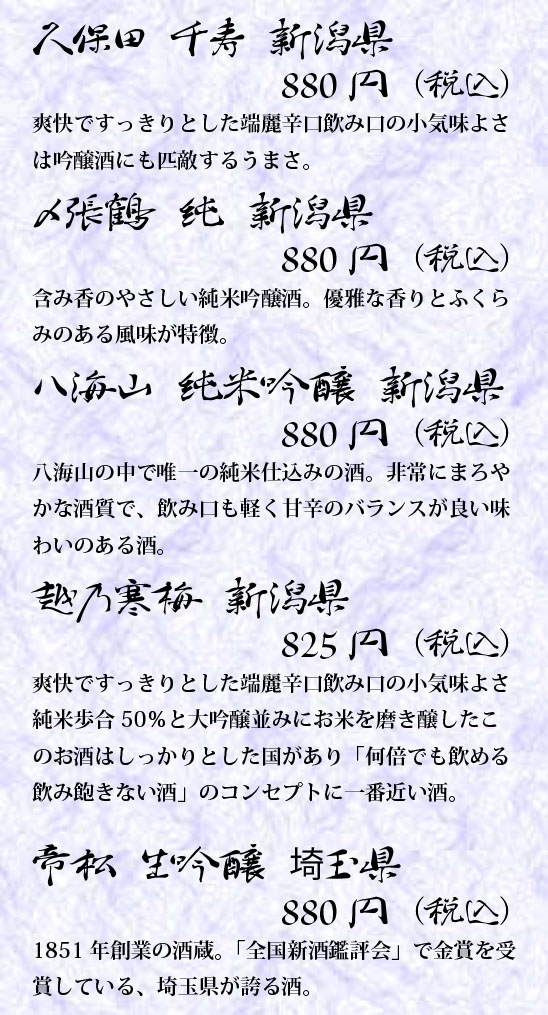 久保田 千寿 新潟県
880 円（税込）
爽快ですっきりとした端麗辛口飲み口の小気味よさ
は吟醸酒にも匹敵するうまさ。
〆張鶴 純 新潟県
880 円（税込）
含み香のやさしい純米吟醸酒。優雅な香りとふくら
みのある風味が特徴。
八海山 純米吟醸 新潟県
880 円（税込）
八海山の中で唯一の純米仕込みの酒。非常にまろや
かな酒質で、飲み口も軽く甘辛のバランスが良い味
わいのある酒。
越乃寒梅 新潟県
825 円（税込）
爽快ですっきりとした端麗辛口飲み口の小気味よさ
純米歩合 50％と大吟醸並みにお米を磨き醸したこ
のお酒はしっかりとした国があり「何倍でも飲める
飲み飽きない酒」のコンセプトに一番近い酒。
帝松 生吟醸 埼玉県
880 円（税込）
1851 年創業の酒蔵。「全国新酒鑑評会」で金賞を受
賞している、埼玉県が誇る酒。